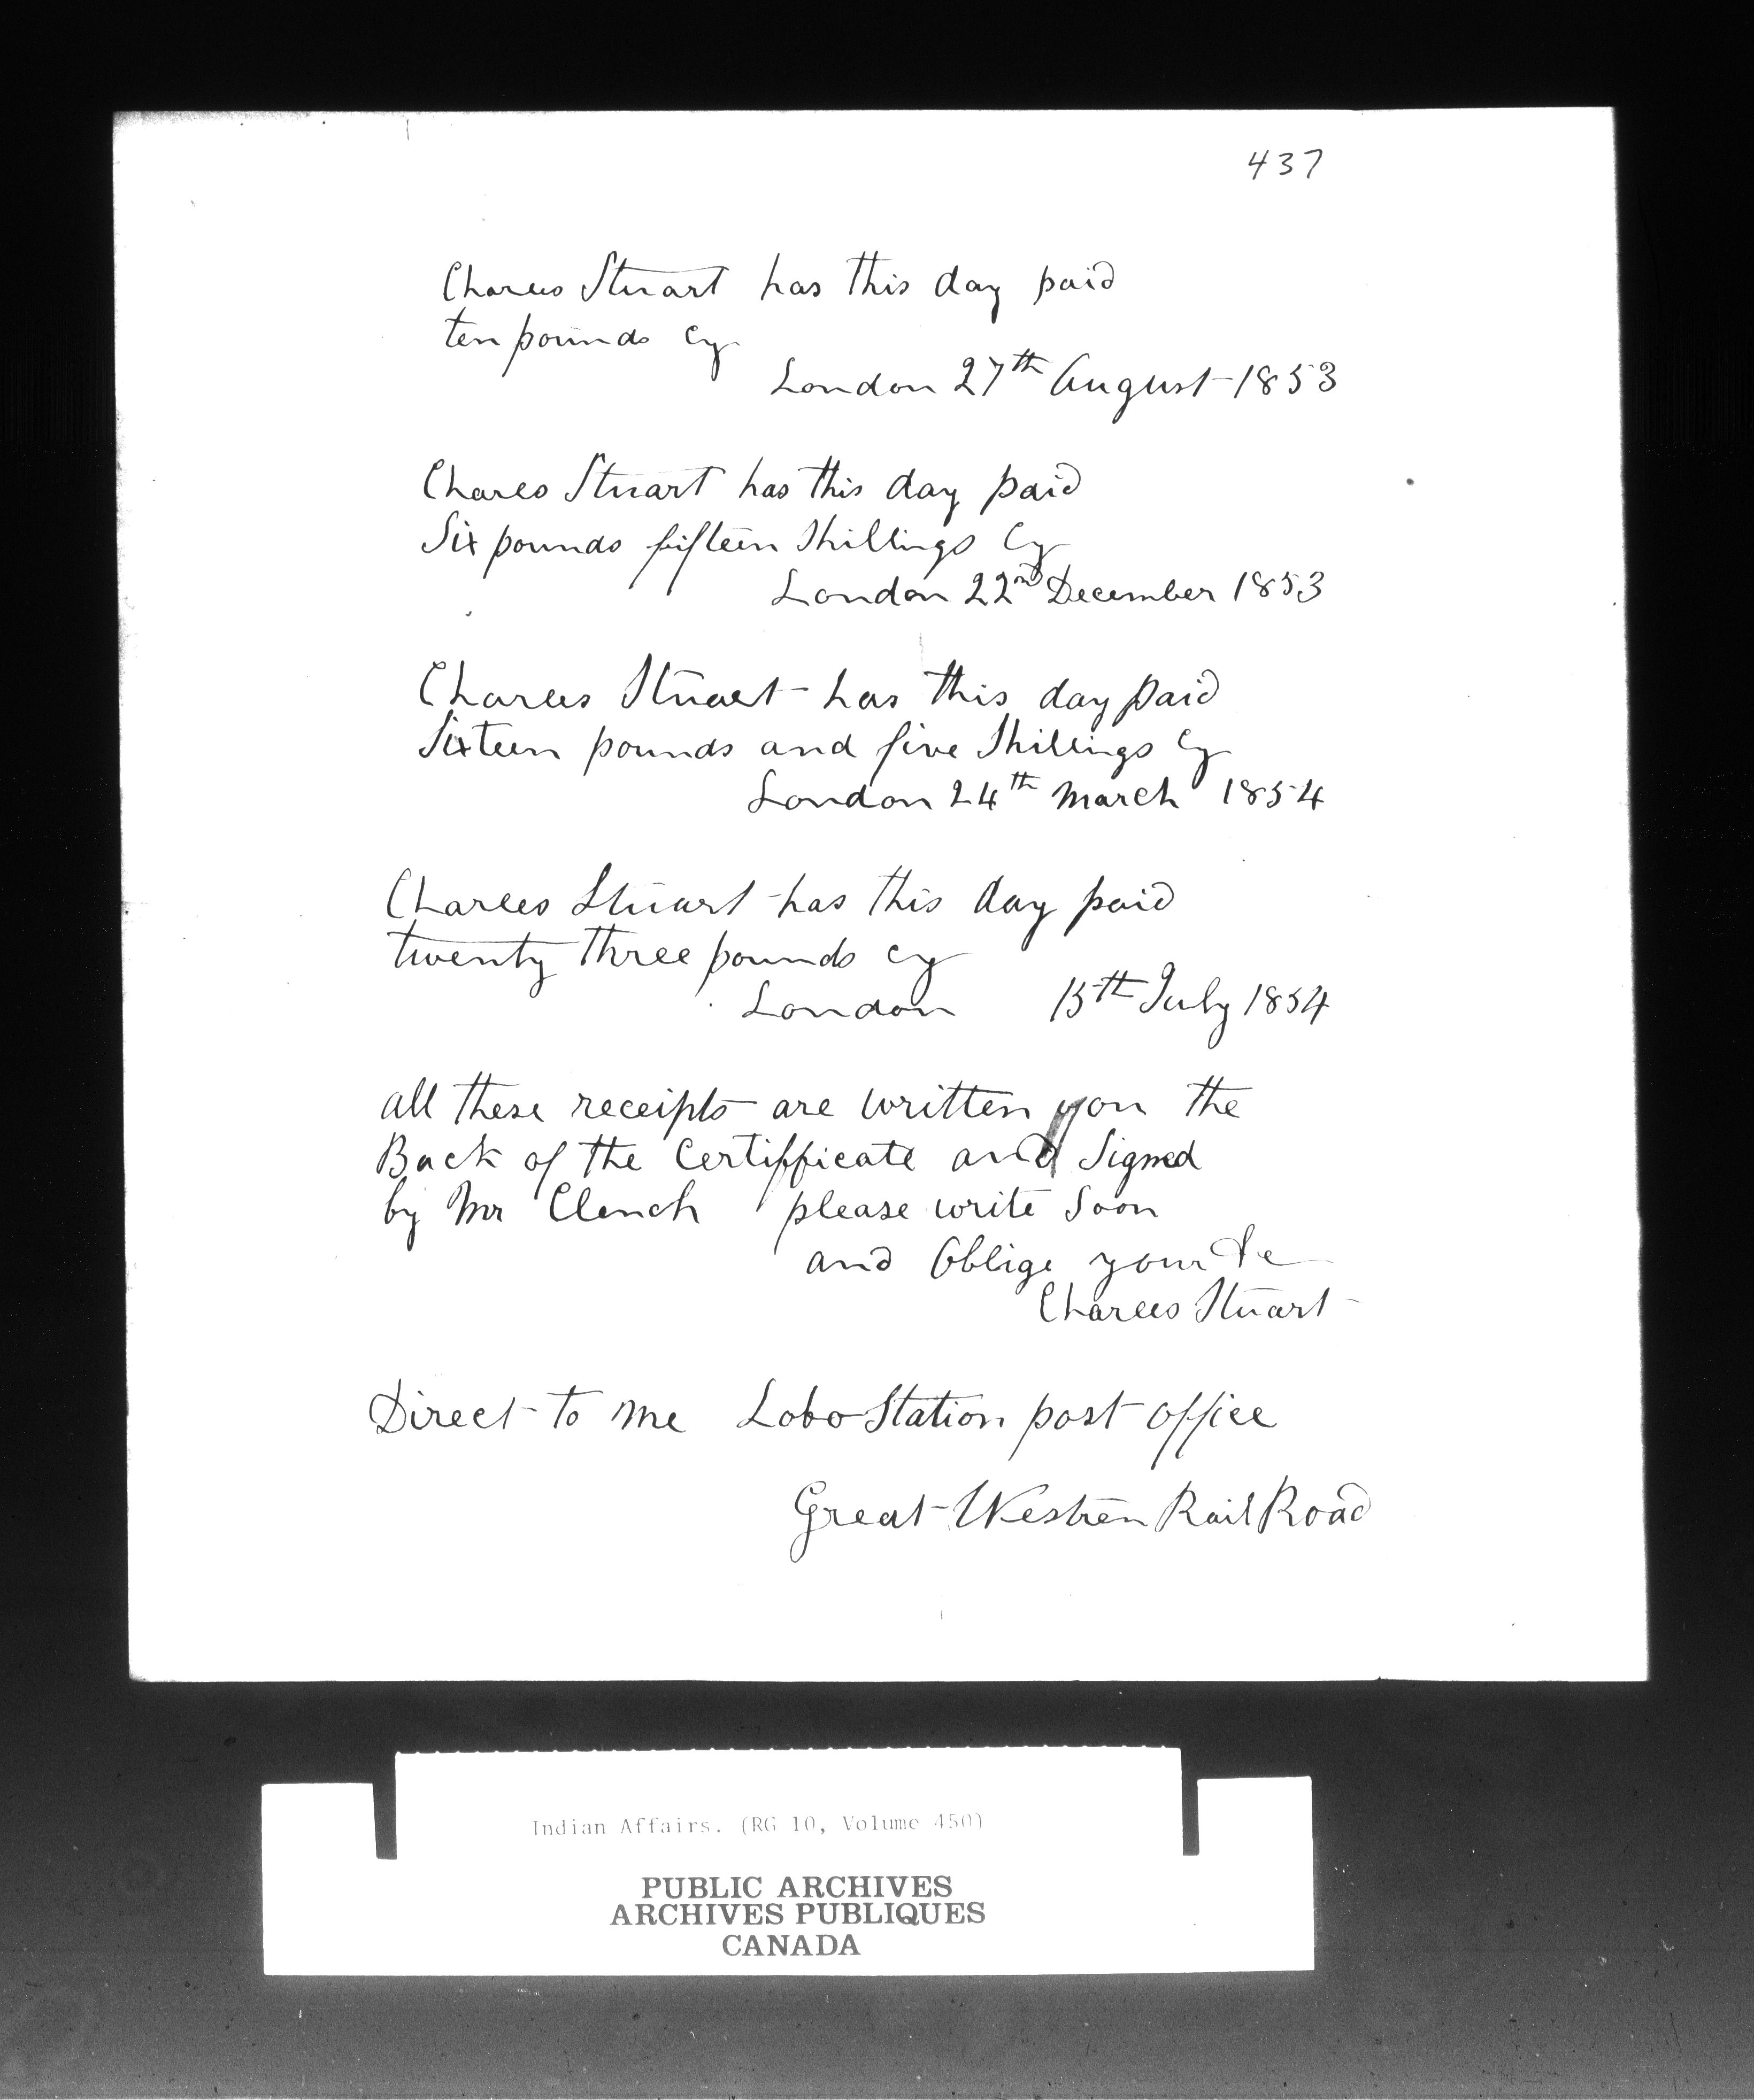 437
Charles Stuart has this day paid
ten pounds cy
London 27th August 1853
Charles Stuart has this day paid
Six pounds fifteen Shillings Cy
London 22nd December 1853
Charles Stuart has this day paid
Sixteen pounds and five Shillings Cy
London 24th March 1854
Charles Stuart has this day paid
twenty three pounds cy
London 15th July 1854
all these receipts are written on the
Back of the Certifficate and Signed
by Mr Clench please write Soon
and Oblige your &c
Charles Stuart
Direct to me Lobo Station post office
Great Westren Rail Road
Indian Affairs. (RG 10, Volume 450)
PUBLIC ARCHIVES
ARCHIVES PUBLIQUES
CANADA